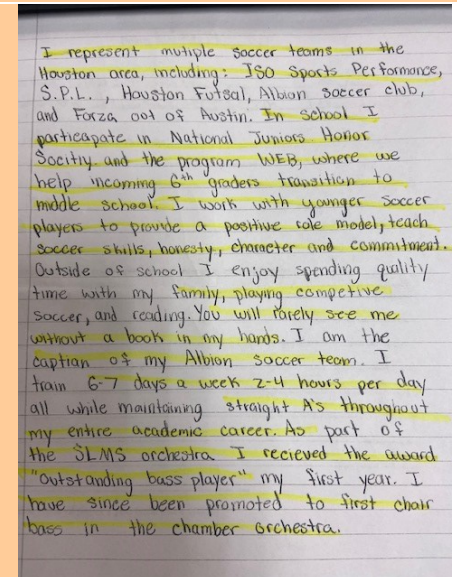 I represent mutiple soccer teams in the
Houston area, including: ISO Sports Performance,
S.P.L., Houston Futsal, Albion soccer club,
and Forza oot of Austin. In school I
particapate in National Juniors Honor
Socitiy and the program WEB, where we
help incoming 6th graders transition to
middle school. I work with younger soccer
players to provide a positive role model, teach
soccer skills, honesty, character and commitment.
Outside of school I enjoy spending quality
time with my family, playing competive
soccer, and reading. You will rarely see me
without a book in my hands. I am the
captian of my Albion soccer team. I
train 6-7 days a week 2-4 hours per day
all while maintaining straight A's throughout
my entire academic career. As part of
the SLMS orchestra I recieved the award
"outstanding bass player" my first year. I
have since been promoted to first chair
bass in the chamber orchestra.